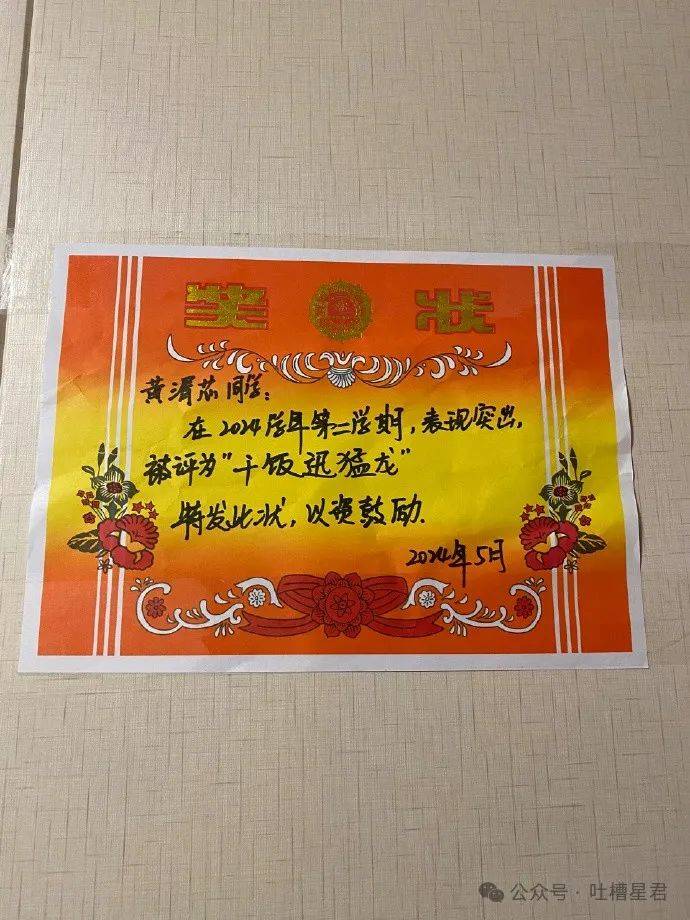 奖状
黄渭芯同学：
在2024学年第二学期，表现突出，
被评为"干饭迅猛龙"
特发此状，以资鼓励.
2024年5月
公众号·吐槽星君